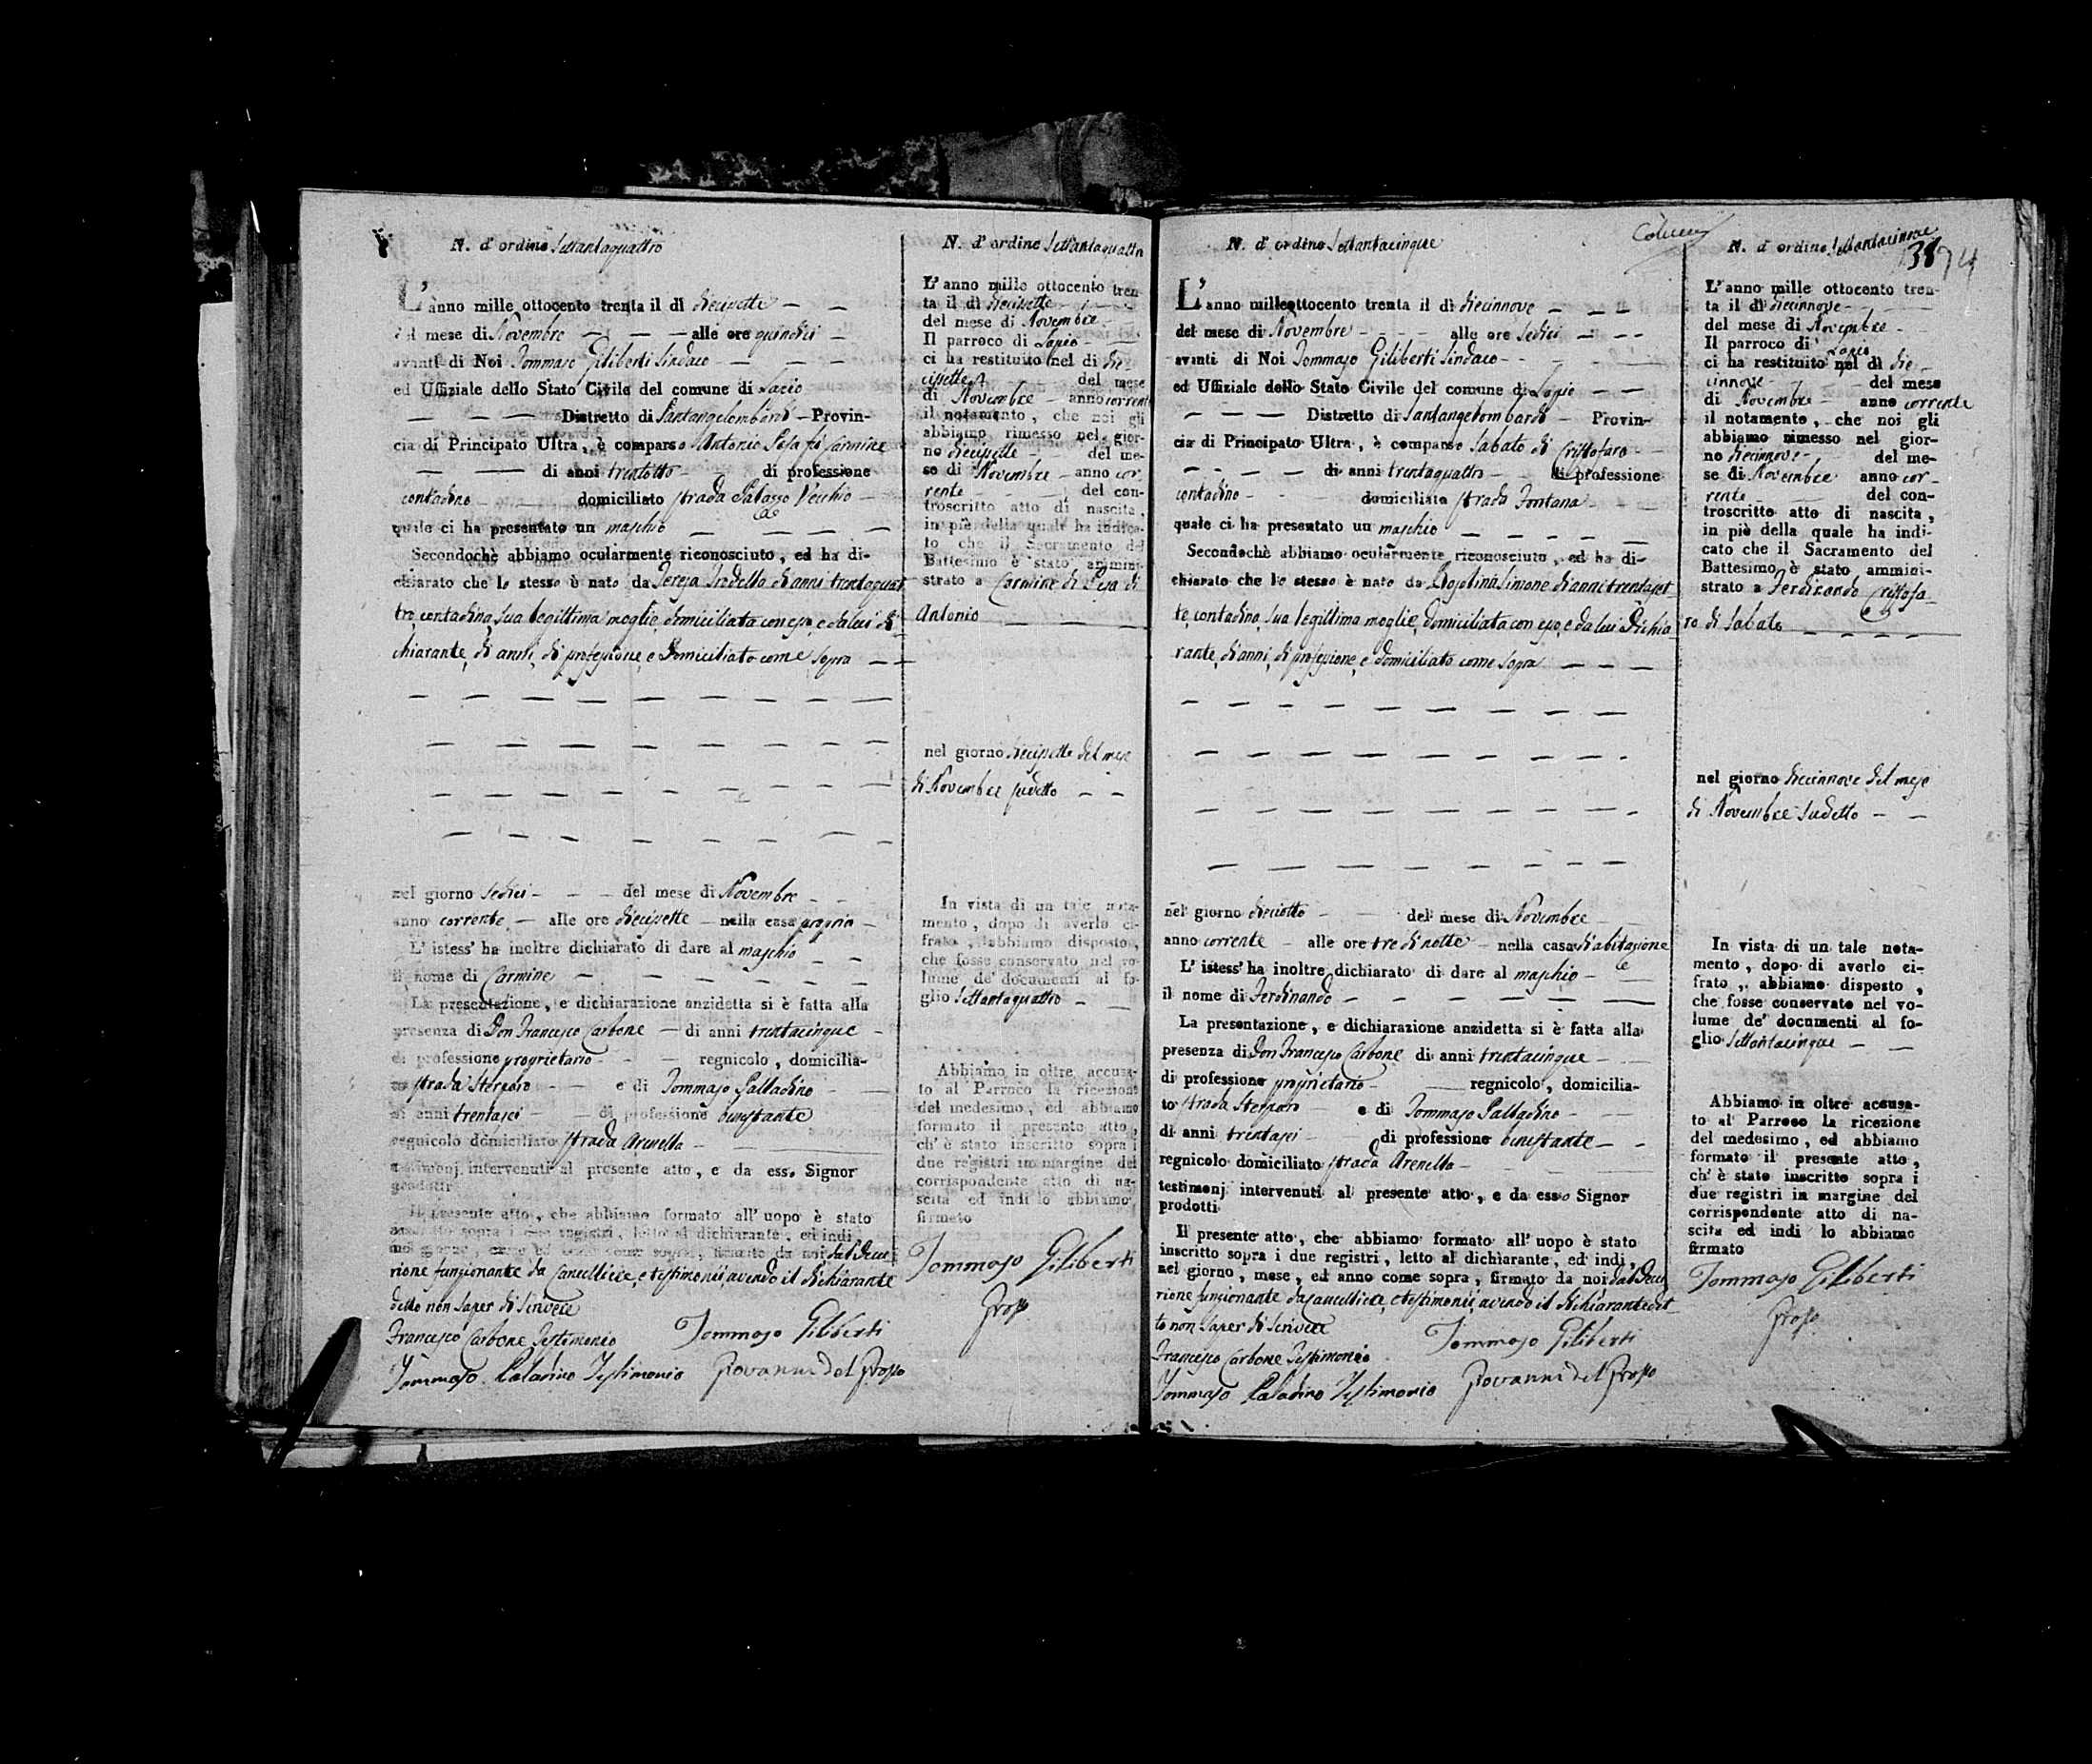 N. d'ordine Settantaquattro
L'anno mille ottocento trenta il dì diecisette
del mese di Novembre alle ore quindici
avanti di Noi Tommaso Giliberti Sindaco
ed Uffiziale dello Stato Civile del comune di Lapio
Distretto di Santangelombardi Provin-
cia di Principato Ultra, è comparso Antonio Pesa fu Carmine
di anni trentotto di professione
contadino domiciliato strada Palazzo Vecchio
quale ci ha presentato un maschio
Secondochè abbiamo ocularmente riconosciuto, ed ha di-
chiarato che lo stesso è nato da Teresa di anni trentaquat
tro, contadina, sua legittima moglie, domiciliata con esso, e da lui di
chiarante, di anni, di professione, e domiciliato come sopra
nel giorno sedici del mese di Novembre
anno corrente alle ore diecisette nella casa propria
L'istess' ha inoltre dichiarato di dare al maschio
il nome di Carmine
La presentazione, e dichiarazione anzidetta si è fatta alla
presenza di Don Francesco Carbone di anni trentacinque
di professione proprietario regnicolo, domicilia-
to strada Sterparo e di Tommaso Palladino
di anni trentasei di professione benestante
regnicolo domiciliato strada Arenella
testimonj intervenuti al presente atto, e da esso Signor
prodotti
Il presente atto, che abbiamo formato all' uopo è stato
inscritto sopra i due registri, letto al dichiarante, ed indi
nel giorno, mese ed anno come sopra, firmato da noi dal Decu
rione funzionante da Cancelliere, e testimonii, avendo il dichiarante
detto non saper di scrivere
Francesco Carbone Testimonio
Tommaso Giliberti
Tommaso Paladino Testimonio
Giovanni del Grosso
N. d'ordine Settantaquattro
L'anno mille ottocento tren
ta il dì diecisette
del mese di Novembre
Il parroco di Lapio
ci ha restituito nel dì die
cisette del mese
di Novembre anno corrente
il notamento, che noi gli
abbiamo rimesso nel gior-
no diecisette del me-
se di Novembre anno cor
rente del con-
troscritto atto di nascita,
in piè della quale ha indica-
to che il Sacramento del
Battesimo è stato ammini-
strato a Carmine di Pesa di
Antonio
nel giorno diecisette del mese
di Novembre sudetto
In vista di un tale nota-
mento, dopo di averlo ci-
frato, abbiamo disposto,
che fosse conservato nel vo-
lume de' documenti al fo-
glio Settantaquattro
Abbiamo in oltre accusa-
to al Parroco la ricezione
del medesimo, ed abbiamo
formato il presente atto,
ch'è stato inscritto sopra i
due registri in margine del
corrispondente atto di na-
scita ed indi lo abbiamo
firmato
Tommaso Giliberti
Grosso
N. d'ordine Settantacinque
L'anno milleottocento trenta il dì diecinnove
del mese di Novembre alle ore sedici
avanti di Noi Tommaso Giliberti Sindaco
ed Uffiziale dello Stato Civile del comune di Lapio
Distretto di Santangelombardi Provin-
cia di Principato Ultra, è comparso Sabato di Cristofaro
di anni trentaquattro di professione
contadino domiciliato strada Fontana
quale ci ha presentato un maschio
Secondochè abbiamo ocularmente riconosciuto, ed ha di-
chiarato che lo stesso è nato da di anni trentaset
te, contadina, sua legittima moglie, domiciliata con esso, e da lui Dichia
rante, di anni, di professione, e domiciliato come sopra
nel giorno dieciotto del mese di Novembre
anno corrente alle ore tre di notte nella casa d'abitazione
L'istess' ha inoltre dichiarato di dare al maschio
il nome di Ferdinando
La presentazione, e dichiarazione anzidetta si è fatta alla
presenza di Don Francesco Carbone di anni trentacinque
di professione proprietario regnicolo, domicilia-
to strada Sterparo e di Tommaso Palladino
di anni trentasei di professione benestante
regnicolo domiciliato strada Arenella
testimonj intervenuti al presente atto, e da esso Signor
prodotti
Il presente atto, che abbiamo formato all' uopo è stato
inscritto sopra i due registri, letto al dichiarante, ed indi,
nel giorno, mese, ed anno come sopra, firmato da noi dal Decu
rione funzionante da Cancelliere, e testimonii, avendo il dichiarante det
to non saper di scrivere
Francesco Carbone Testimonio
Tommaso Giliberti
Tommaso Paladino Testimonio
Giovanni del Grosso
N. d'ordine Settantacinque
74
L'anno mille ottocento tren-
ta il dì diecinnove
del mese di Novembre
Il parroco di Lapio
ci ha restituito nel dì die
cinnove del mese
di Novembre anno corrente
il notamento, che noi gli
abbiamo rimesso nel gior-
no diecinnove del me-
se di Novembre anno cor-
rente del con-
troscritto atto di nascita,
in piè della quale ha indi-
cato che il Sacramento del
Battesimo è stato ammini-
strato a Ferdinando Cristofa-
ro di Sabato
nel giorno diecinnove del mese
di Novembre sudetto
In vista di un tale nota-
mento, dopo di averlo ci-
frato, abbiamo disposto,
che fosse conservato nel vo-
lume de' documenti al fo-
glio Settantacinque
Abbiamo in oltre accusa-
to al Parroco la ricezione
del medesimo, ed abbiamo
formato il presente atto,
ch'è stato inscritto sopra i
due registri in margine del
corrispondente atto di na-
scita ed indi lo abbiamo
firmato
Tommaso Giliberti
Grosso